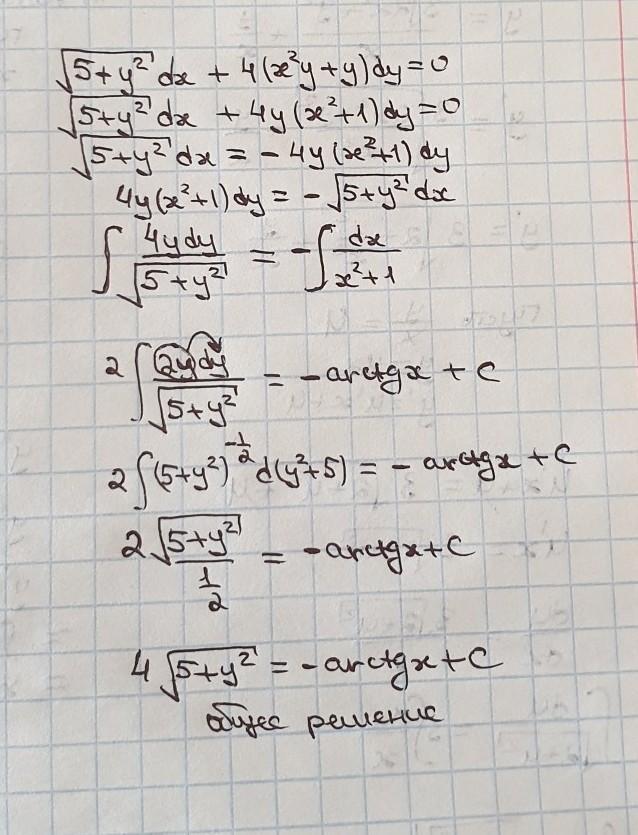 √(5+y²) dx + 4(x²y+y)dy=0
√(5+y²) dx + 4y(x²+1)dy=0
√(5+y²) dx = -4y(x²+1)dy
4y(x²+1)dy = -√(5+y²) dx
∫ 4ydy/√(5+y²) = -∫ dx/(x²+1)
2∫ 2ydy/√(5+y²) = -arctgx + C
2∫(5+y²)^(-1/2) d(y²+5) = - arctgx + C
2 √(5+y²)/(1/2) = -arctgx+C
4√(5+y²) = -arctgx+C
общее решение